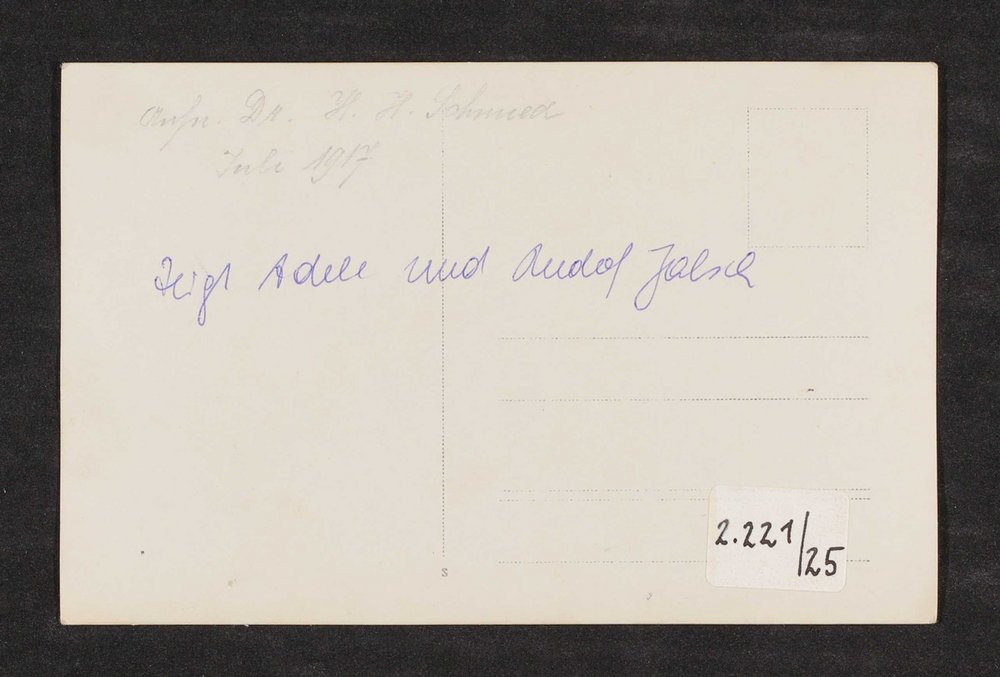 Aufn. Dr. H. H. Schmied
Juli 1917
Zeigt Adele und Rudolf Jalsch
2.221/25
S